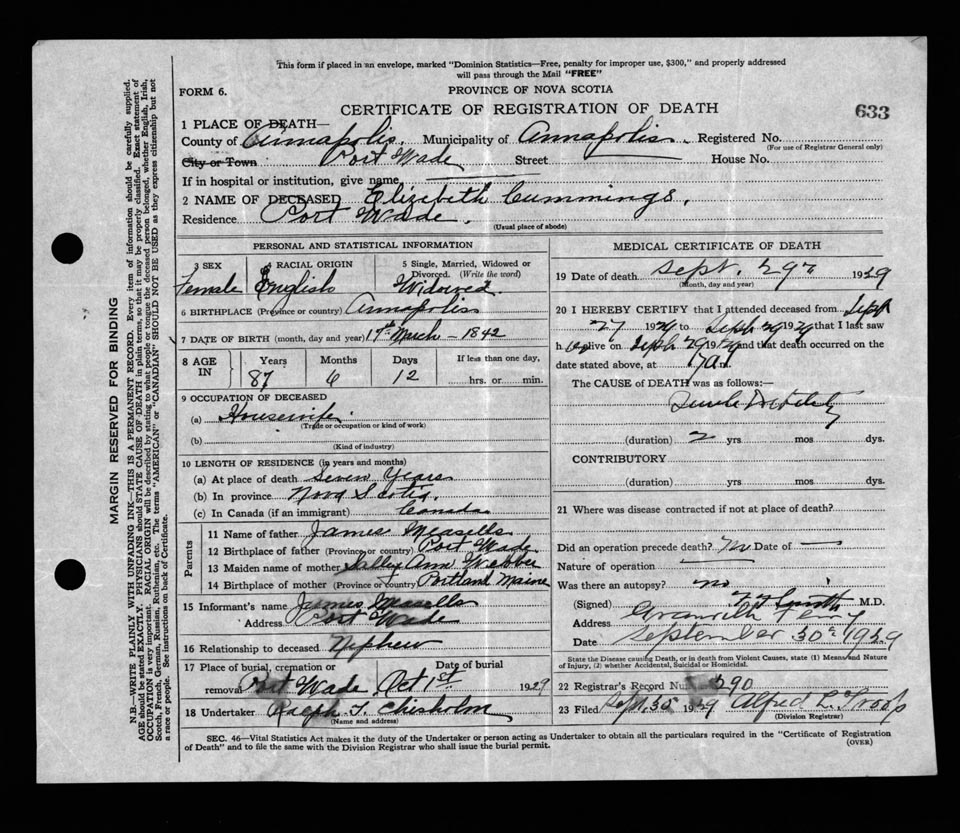 This form if placed in an envelope, marked "Dominion Statistics—Free, penalty for improper use, $300," and properly addressed
will pass through the Mail "FREE"
FORM 6.
PROVINCE OF NOVA SCOTIA
CERTIFICATE OF REGISTRATION OF DEATH
633
1 PLACE OF DEATH—
County of Annapolis. Municipality of Annapolis. Registered No.
(For use of Registrar General only)
City or Town Port Wade Street House No.
If in hospital or institution, give name
2 NAME OF DECEASED Elizabeth Cummings.
Residence Port Wade.
(Usual place of abode)
PERSONAL AND STATISTICAL INFORMATION
3 SEX 4 RACIAL ORIGIN 5 Single, Married, Widowed or
Divorced. (Write the word)
Female English Widowed.
6 BIRTHPLACE (Province or country) Annapolis
7 DATE OF BIRTH (month, day and year) 17th March - 1842
8 AGE IN Years Months Days If less than one day,
87 6 12 hrs. or min.
9 OCCUPATION OF DECEASED
(a) Housewife
(Trade or occupation or kind of work)
(b)
(Kind of industry)
10 LENGTH OF RESIDENCE (in years and months)
(a) At place of death Seven Years
(b) In province Nova Scotia.
(c) In Canada (if an immigrant) Canada
Parents
11 Name of father James Measells
12 Birthplace of father (Province or country) Port Wade
13 Maiden name of mother Sally Ann Webber
14 Birthplace of mother (Province or country) Portland Maine
15 Informant's name James Measells
Address Port Wade
16 Relationship to deceased Nephew
17 Place of burial, cremation or Date of burial
removal Port Wade Oct 1st 1929
18 Undertaker Ralph T. Chisholm
(Name and address)
MEDICAL CERTIFICATE OF DEATH
19 Date of death Sept. 29 1929
(Month, day and year)
20 I HEREBY CERTIFY that I attended deceased from Sept
27 1929 to Sept 29 1929 that I last saw
h er alive on Sept 29 1929 and that death occurred on the
date stated above, at
The CAUSE OF DEATH was as follows:—
Senile Debility
(duration) 2 yrs mos dys.
CONTRIBUTORY
(duration) yrs mos dys.
21 Where was disease contracted if not at place of death?
Did an operation precede death? No Date of —
Nature of operation —
Was there an autopsy? no
(Signed) Smith M.D.
Address Granville Ferry
Date September 30th 1929
State the Disease causing Death, or in death from Violent Causes, state (1) Means and Nature
of Injury, (2) whether Accidental, Suicidal or Homicidal.
22 Registrar's Record Num 290
23 Filed Sept. 30 1929 Alfred L. Troop
(Division Registrar)
SEC. 46—Vital Statistics Act makes it the duty of the Undertaker or person acting as Undertaker to obtain all the particulars required in the "Certificate of Registration
of Death" and to file the same with the Division Registrar who shall issue the burial permit.
(OVER)
MARGIN RESERVED FOR BINDING
N.B.—WRITE PLAINLY WITH UNFADING INK—THIS IS A PERMANENT RECORD. Every item of information should be carefully supplied.
AGE should be stated EXACTLY. PHYSICIANS should STATE CAUSE OF DEATH in plain terms, so that it may be properly classified. Exact statement of
OCCUPATION is very important. RACIAL ORIGIN will be described by stating to what people or tongue the deceased person belonged, whether English, Irish,
Scotch, French, German, Russian, Ruthenian, etc. The terms "AMERICAN" or "CANADIAN" SHOULD NOT BE USED as they express citizenship but not
a race or people. See instructions on back of Certificate.